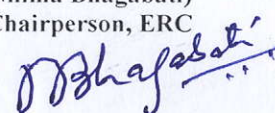 Bhagabati)
Chairperson, ERC
Bhagabati